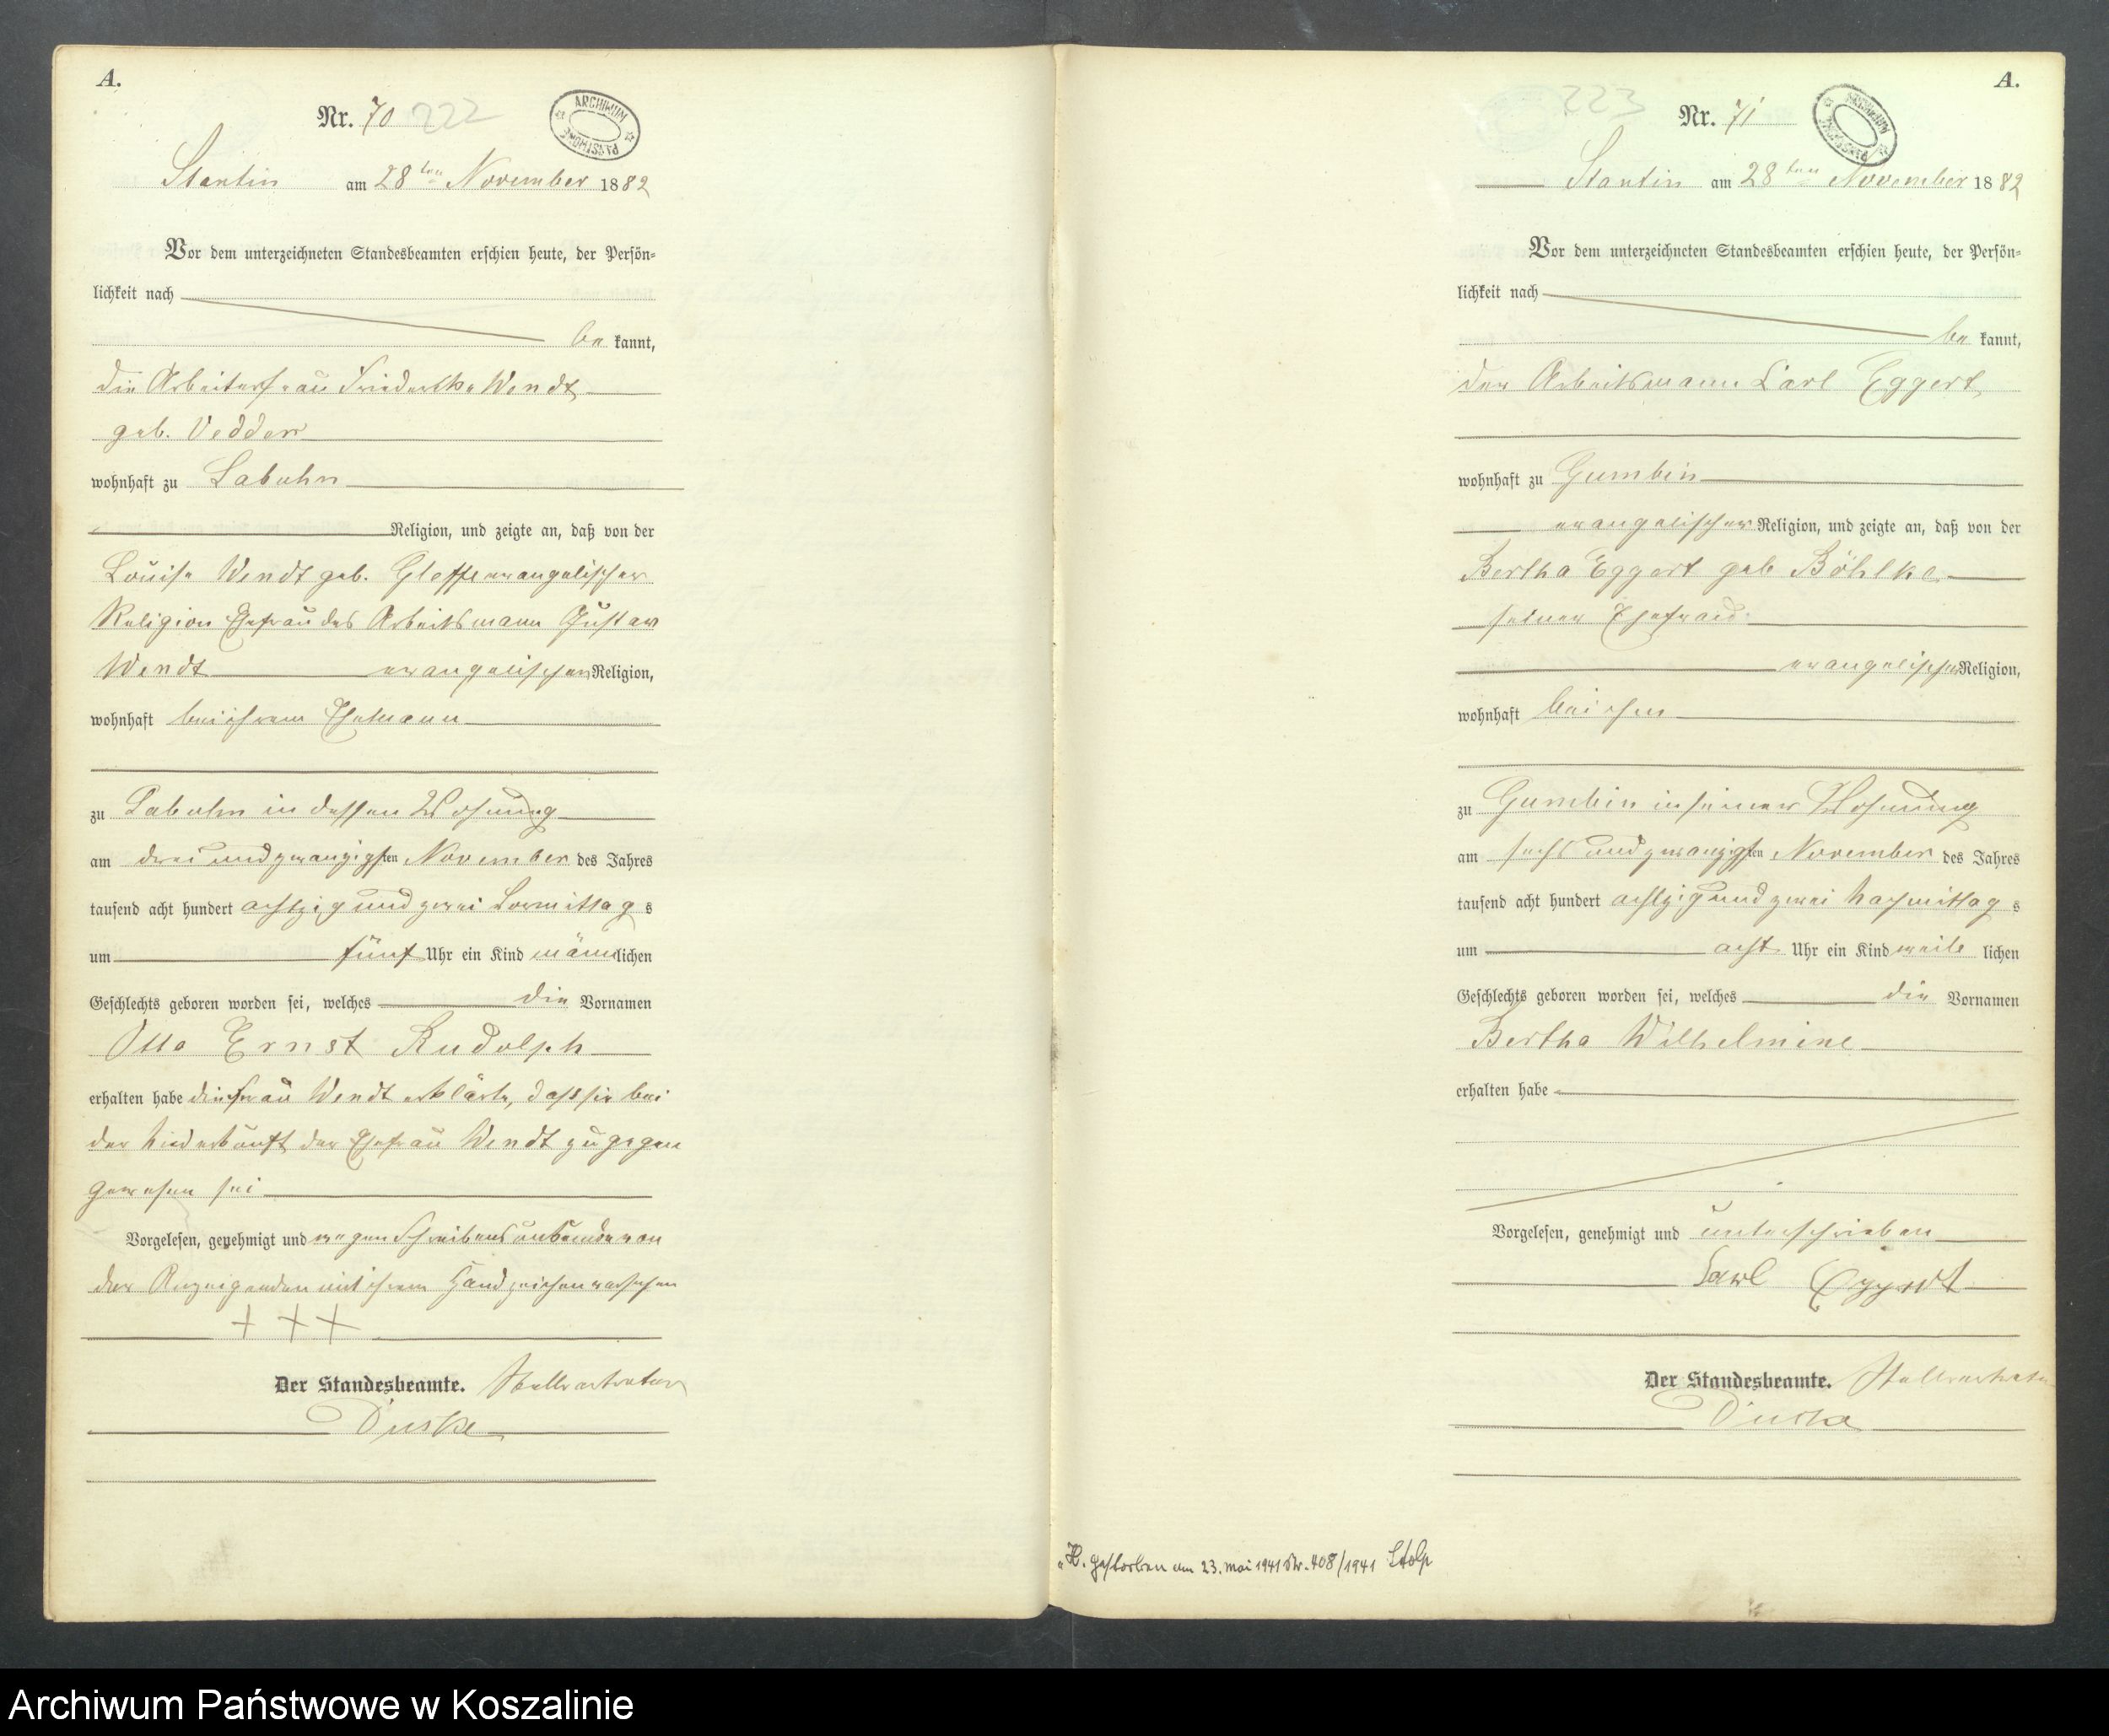 A.
Nr. 70 222
ARCHIWUM PAŃSTWOWE
Stantin am 28ten November 1882
Vor dem unterzeichneten Standesbeamten erschien heute, der Persön=
lichkeit nach
be kannt,
die Arbeiterfrau Friederike Wendt
geb. Vedder
wohnhaft zu Labuhn
Religion, und zeigte an, daß von der
Louise Wendt geb. evangelischer
Religion Ehefrau des Arbeitsmann Gustav
Wendt evangelischer Religion,
wohnhaft bei ihrem Ehemann
zu Labuhn in dessen Wohnung
am drei und zwanzigsten November des Jahres
tausend acht hundert achtzig und zwei Vormittags
um fünf Uhr ein Kind männlichen
Geschlechts geboren worden sei, welches die Vornamen
Otto Ernst Rudolph
erhalten habe die Frau Wendt erklärte, dass sie bei
der Niederkunft der Ehefrau Wendt zugegen
gewesen sei
Vorgelesen, genehmigt und wegen Schreibens von
der Anzeigenden mit ihrem Handzeichen versehen
+ + +
Der Standesbeamte. Stellvertreter
A.
223 Nr. 71
ARCHIWUM PAŃSTWOWE
Stantin am 28ten November 1882
Vor dem unterzeichneten Standesbeamten erschien heute, der Persön=
lichkeit nach
be kannt,
der Arbeitsmann Carl Eggert
wohnhaft zu Gumbin
evangelischer Religion, und zeigte an, daß von der
Bertha Eggert geb Böhlke
seiner Ehefrau
evangelischer Religion,
wohnhaft bei ihm
zu Gumbin in seiner Wohnung
am sechs und zwanzigsten November des Jahres
tausend acht hundert achtzig und zwei Nachmittags
um acht Uhr ein Kind weib lichen
Geschlechts geboren worden sei, welches die Vornamen
Bertha Wilhelmine
erhalten habe
Vorgelesen, genehmigt und unterschrieben
Carl Eggert
Der Standesbeamte. Stellvertreter
H. gestorben am 23. Mai 1941 Nr. 408/1941 Stolp
Archiwum Państwowe w Koszalinie